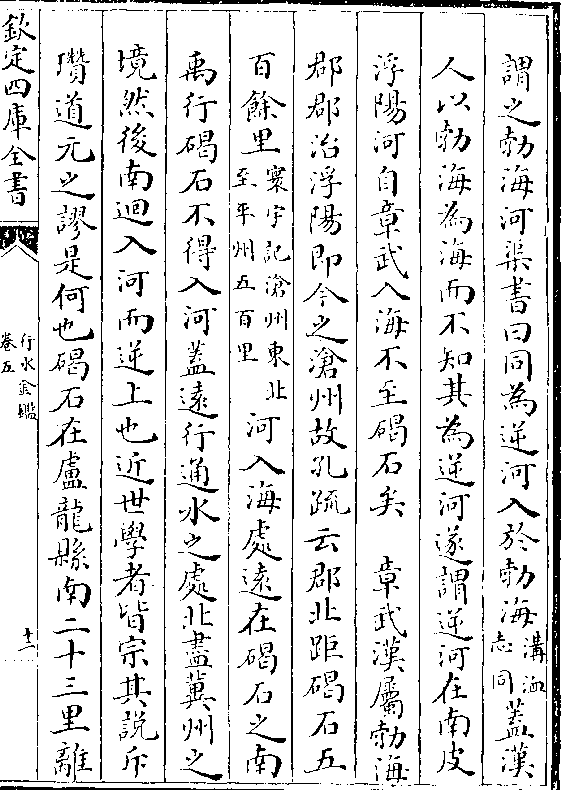 謂之勃海河渠書曰同為逆河入於勃海溝洫志同蓋漢
人以勃海為海而不知其為逆河遂謂逆河在南皮
浮陽河自章武入海不至碣石矣　章武漢屬勃海
郡郡治浮陽即今之滄州故孔疏云郡北距碣石五
百餘里寰宇記滄州東北至平州五百里河入海處遠在碣石之南
禹行碣石不得入河蓋遠行通水之處北盡冀州之
境然後南迴入河而逆上也近世學者皆宗其說斥
瓚道元之謬是何也碣石在盧龍縣南二十三里離
欽定四庫全書
行水金鑑
卷五
十二